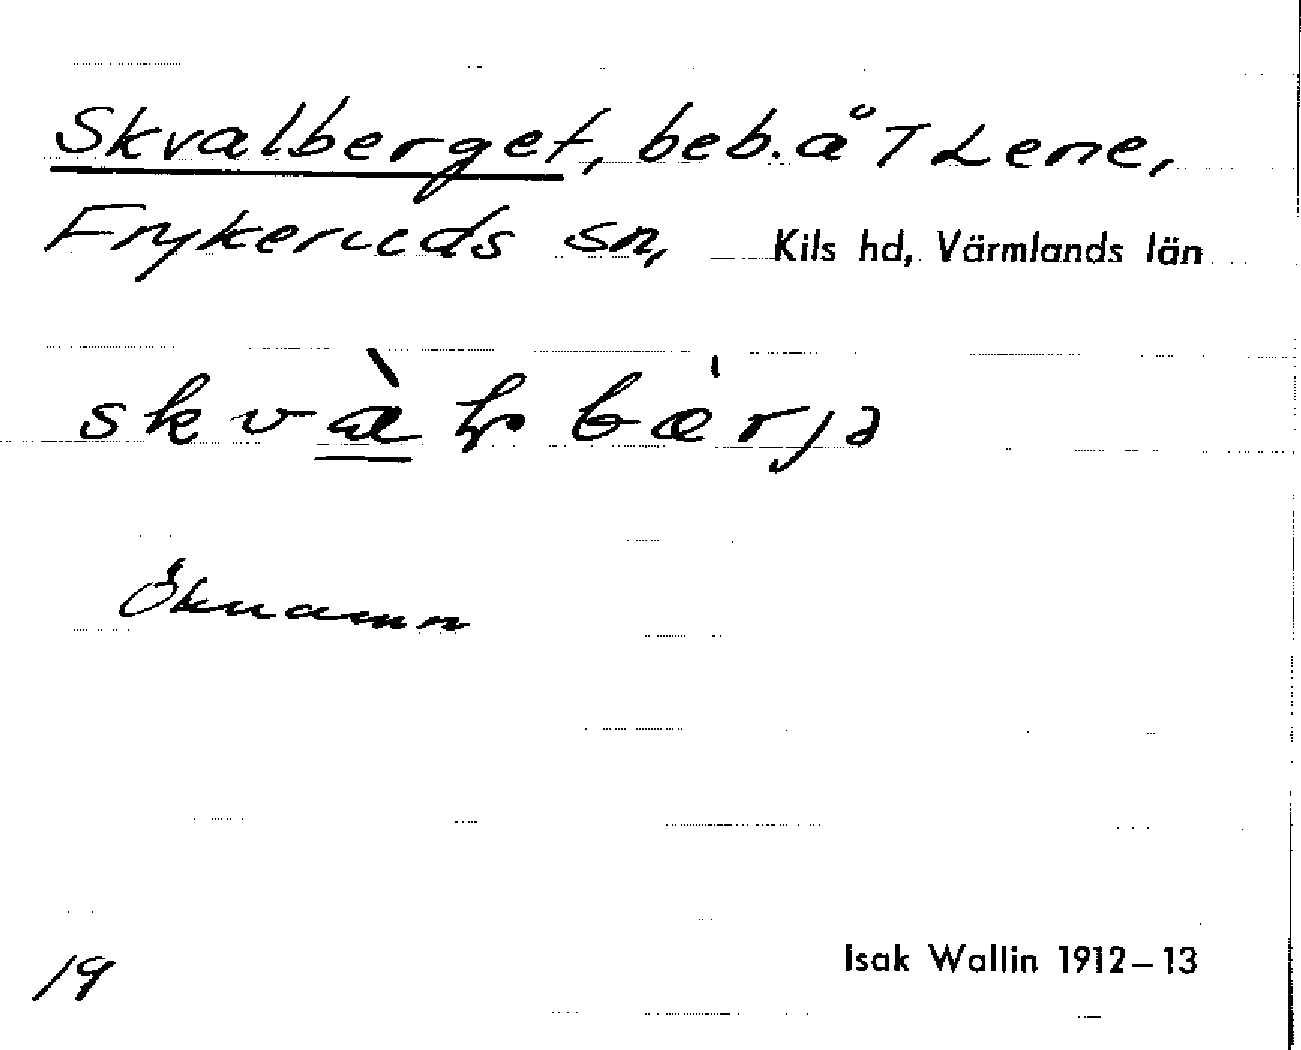 Skvalberget, beb. å T Lene,
Frykeruds sn, Kils hd, Värmlands län
Öknamn
19
Isak Wallin 1912–13